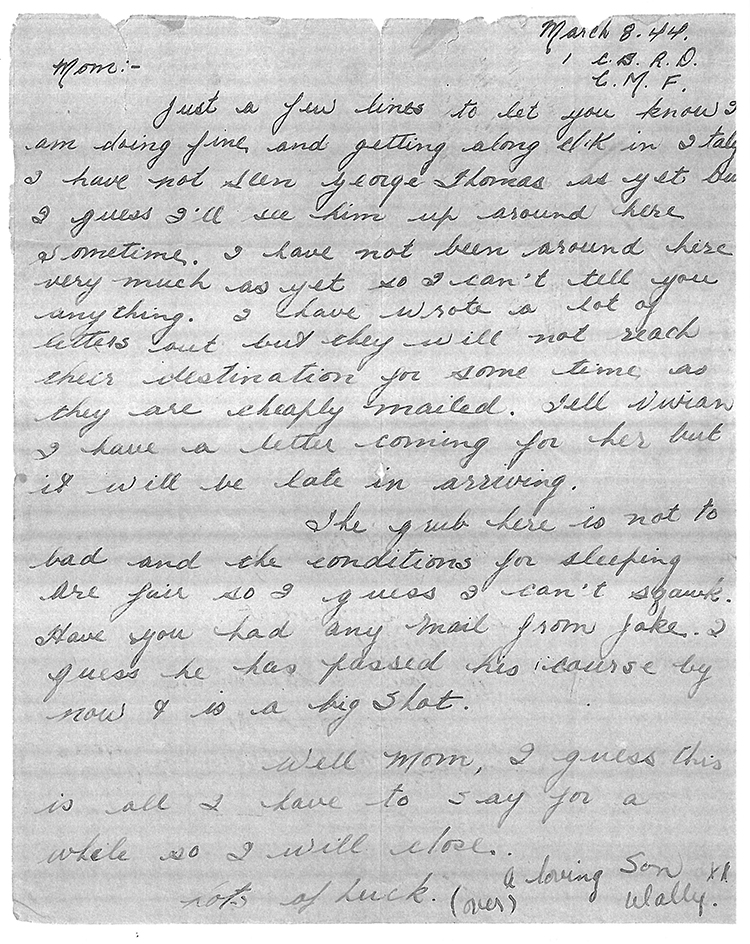 March 8.44.
1 C.B.R.D.
C.M.F.
Mom:-
Just a few lines to let you know I
am doing fine and getting along O'K in Italy
I have not seen George Thomas as yet bu
I guess I'll see him up around here
sometime. I have not been around here
very much as yet so I can't tell you
anything. I have wrote a lot of
letters out but they will not reach
their destination for some time as
they are cheaply mailed. Tell Vivian
I have a letter coming for her but
it will be late in arriving.
The grub here is not to
bad and the conditions for sleeping
are fair so I guess I can't sqawk.
Have you had any mail from Jake. I
guess he has passed his course by
now & is a big shot.
Well Mom, I guess this
is all I have to say for a
while so I will close.
Lots of Luck. (over) A loving Son
Wally.